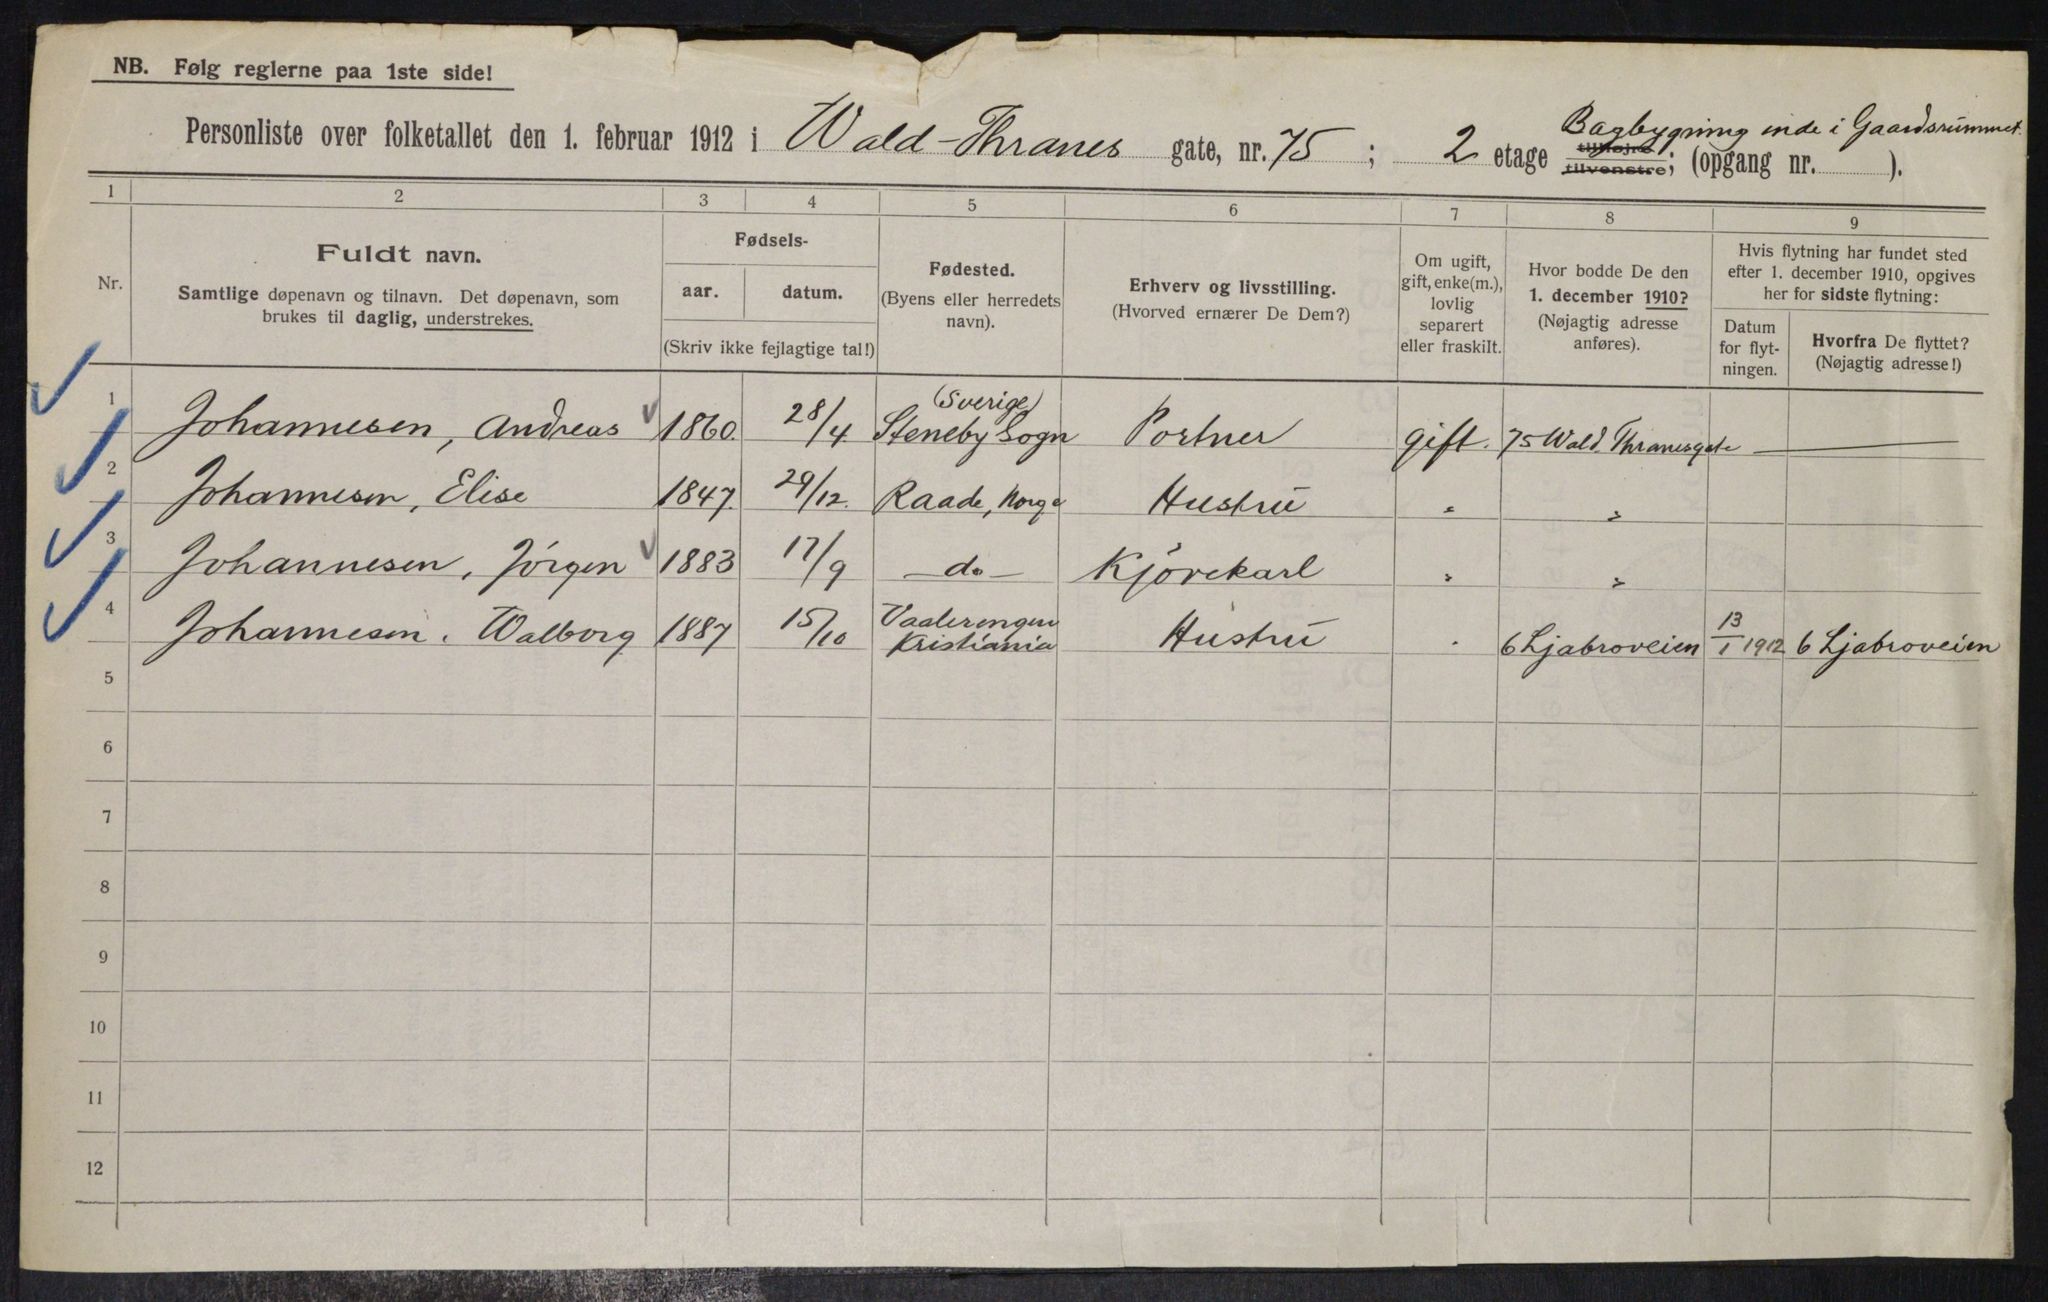 NB. Følg reglerne paa 1ste side!
Personliste over folketallet den 1. februar 1912 i Wald-Thranes gate, nr. 75 ; 2 etage tilhøjre tilvenstre; Bagbygning inde i Gaardsrummet. (opgang nr. ).
1 2 3 4 5 6 7 8 9
Nr.
Fuldt navn.
Samtlige døpenavn og tilnavn. Det døpenavn, som
brukes til daglig, understrekes.
Fødsels-
aar. datum.
(Skriv ikke fejlagtige tal!)
Fødested.
(Byens eller herredets
navn).
Erhverv og livsstilling.
(Hvorved ernærer De Dem?)
Om ugift,
gift, enke(m.),
lovlig
separert
eller fraskilt.
Hvor bodde De den
1. december 1910?
(Nøjagtig adresse
anføres).
Hvis flytning har fundet sted
efter 1. december 1910, opgives
her for sidste flytning:
Datum
for flyt-
ningen.
Hvorfra De flyttet?
(Nøjagtig adresse!)
1 Johannesen, Andreas 1860. 28/4 (Sverige) Steneby Sogn Portner gift. 75 Wald Thranesgate —
2 Johannesen, Elise 1847. 29/12. Raade, Norge Hustru " "
3 Johannesen, Jörgen 1883 17/9 —do— Kjörekarl " "
4 Johannesen, Walborg 1887 15/10 Vaalerengen Kristiania Hustru " 6 Ljabroveien 13/1 1912 6 Ljabroveien
5
6
7
8
9
10
11
12